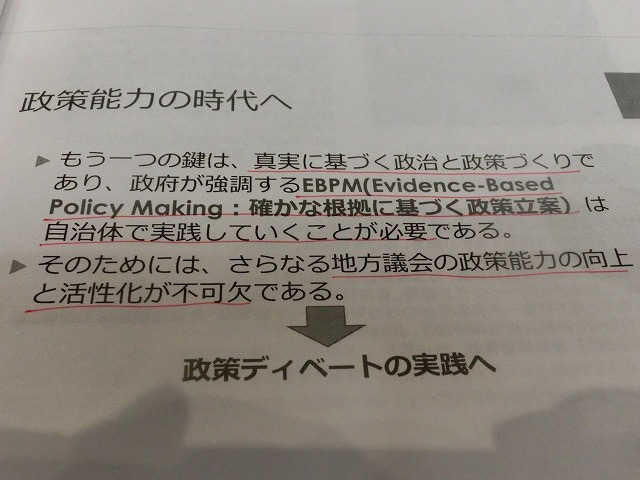 政策能力の時代へ
▶ もう一つの鍵は、真実に基づく政治と政策づくりで
あり、政府が強調するEBPM(Evidence-Based
Policy Making：確かな根拠に基づく政策立案）は
自治体で実践していくことが必要である。
▶ そのためには、さらなる地方議会の政策能力の向上
と活性化が不可欠である。
政策ディベートの実践へ